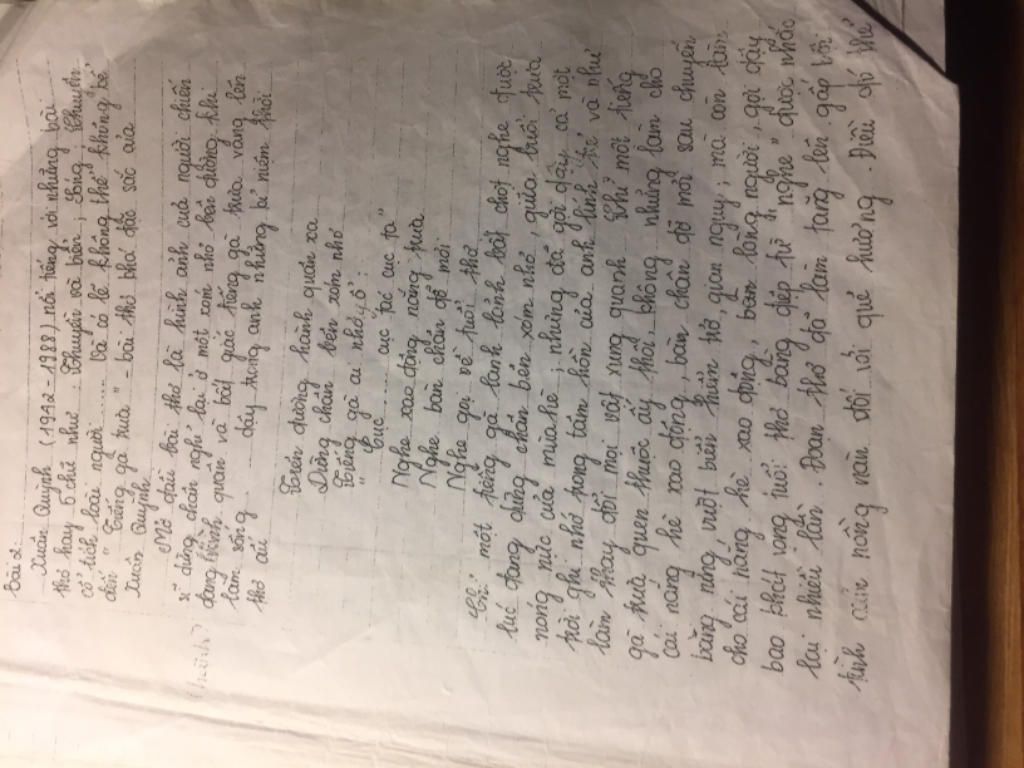 Bài 2:
Xuân Quỳnh (1942-1988) nổi tiếng với những bài
thơ hay 5 chữ như: Thuyền và biển; Sóng; Chuyện
cổ tích loài người...... Và có lẽ không thể không kể
đến "Tiếng gà trưa" - bài thơ khá đặc sắc của
Xuân Quỳnh
Mở đầu bài thơ là hình ảnh của người chiến
sĩ dừng chân nghỉ lại ở một xóm nhỏ bên đường khi
đang hành quân và bất giác tiếng gà trưa vang lên
làm sống dậy trong anh những kỉ niệm thời
thơ ấu
Trên đường hành quân xa
Dừng chân bên xóm nhỏ
Tiếng gà ai nhảy ổ:
"Cục... cục tác cục ta"
Nghe xao động nắng trưa
Nghe bàn chân đỡ mỏi
Nghe gọi về tuổi thơ
Chỉ một tiếng gà lanh lảnh bất chợt nghe được
lúc đang dừng chân bên xóm nhỏ, giữa buổi trưa
nóng nực của mùa hè; nhưng đã gợi dậy cả một
trời ghi nhớ trong tâm hồn của anh lính trẻ, và như
làm thay đổi mọi vật xung quanh. Chỉ mỗi tiếng
gà trưa quen thuộc ấy thôi không những làm cho
cái nắng hè xao động, bàn chân đỡ mỏi sau chuyến
băng rừng, vượt biển hiểm trở, gian nguy; mà còn làm
cho cái nắng hè xao động, bao lòng người, gợi dậy
bao khát vọng tuổi thơ bằng điệp từ "nghe" được nhắc
lại nhiều lần. Đoạn thơ đã làm tăng lên gấp bội
tình cảm nồng nàn đối với quê hương. Điều đó thể